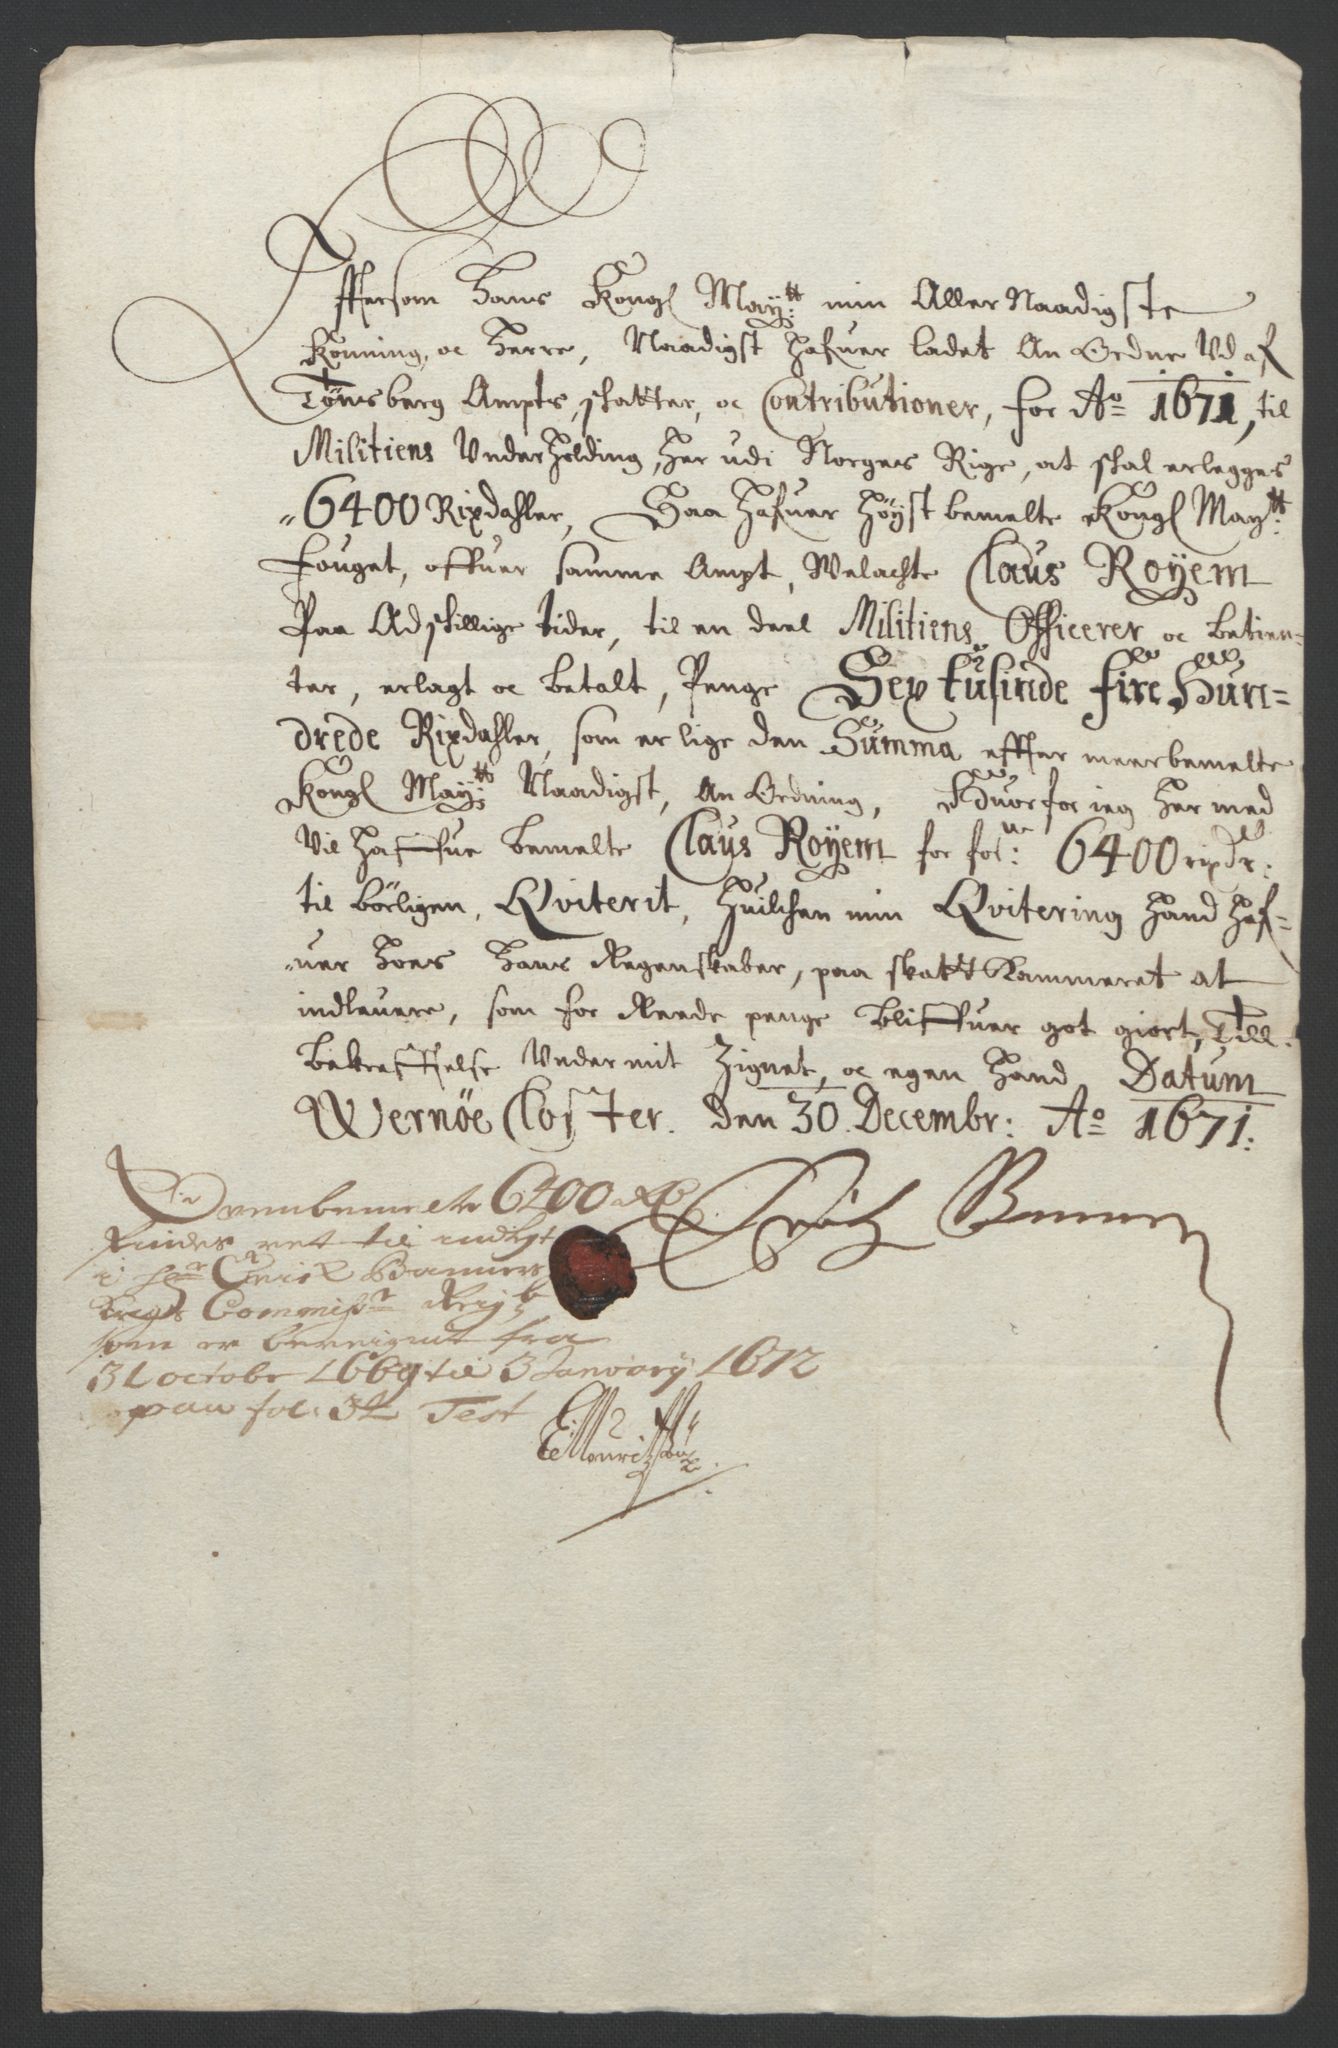 Effтersom Hans Kongl May:tt min Aller Naadigste
Konning, oc Herre, Naadigst hafuer ladet An Ordne Ud af
Tönsberg Ampts, skatter, oc Contributioner, for Ao 1671, til
Militiens Underholding, her udi Norges Rige, at skal erlegges
6400 Rixdahler, Saa hafuer höyst bemelte Kongl May:tt
fouget, offuer samme Ampt, Welachte Claus Royem
Paa Adskillige tider, til en deel Militiens Officerer oc betien-
ter, erlagt oc betalt, Penge Sex tusinde fire Hun-
drede Rixdahler, som er lige den Summa effter meerbemelte
Kongl May:tt Naadigst, An Ordning, Huorfor ieg her med
Vil haffue bemelte Claus Royem for for:ne 6400 rixdr:
til börligen, Qviterit, huilchen min Qvitering hand haf-
uer hoes hans Regenskaber, paa skatt Kammeret at
indleuere, som for Reede penge bliffuer got giort, Till
bekreffelse Under mit Zignet, oc egen haand Datum
Wernöe Closter. den 30 Decembr: Ao 1671.
Ovenbemelte 6400 Rd
findes ret til indtegt
i Hr Erick Banners
Krigs Commiss:r Regsk:b
som er beregnit fra
31 octobr 1669 til 3 January 1672
paa fol: 32 Test
Banner